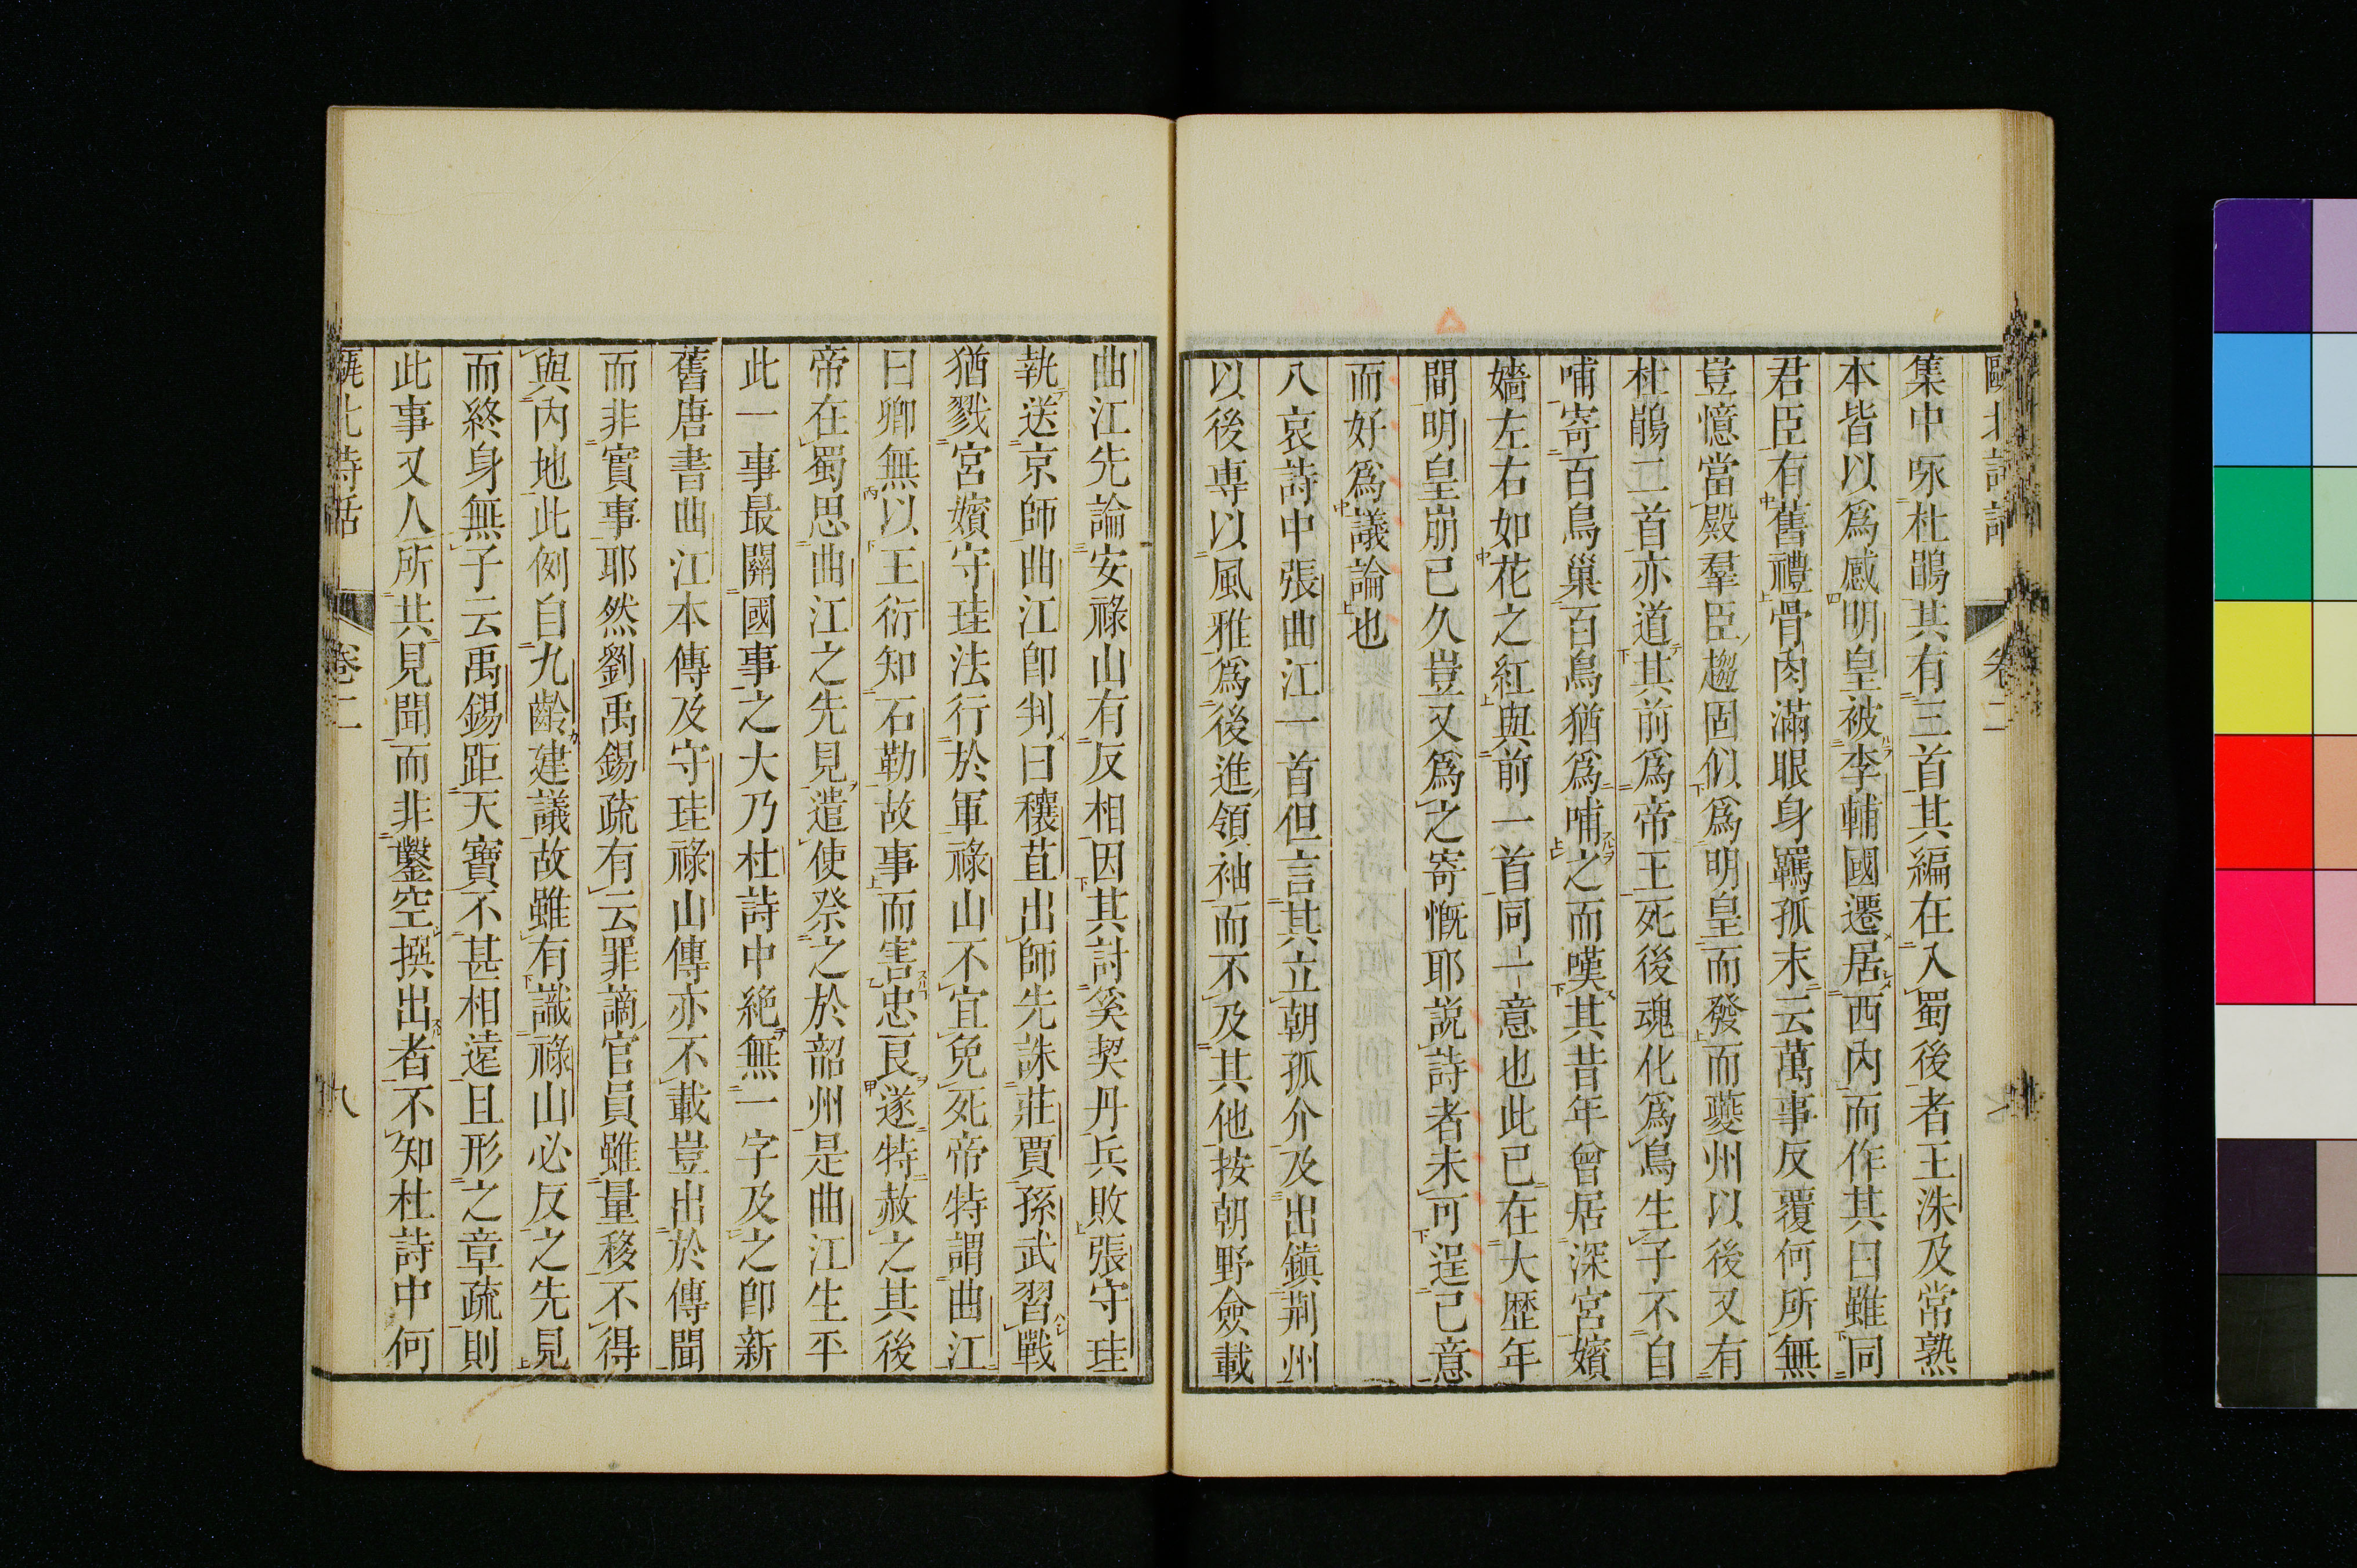 集中咏杜鵑其有三首其編在入蜀後者王洙及常熟
本皆以爲感明皇被李輔國遷居西內而作其曰雖同
君臣有舊禮骨肉滿眼身羈孤末云萬事反覆何所無
豈憶當殿羣臣趨固似爲明皇而發而夔州以後又有
杜鵑二首亦道其前爲帝王死後魂化爲鳥生子不自
哺寄百鳥巢百鳥猶爲哺之而嘆其昔年曾居深宮嬪
嬙左右如花之紅與前一首同一意也此已在大歷年
間明皇崩已久豈又爲之寄慨耶説詩者未可逞己意
而好爲議論也
八哀詩中張曲江一首但言其立朝孤介及出鎮荊州
以後專以風雅爲後進領袖而不及其他按朝野僉載
曲江先論安祿山有反相因其討奚契丹兵敗張守珪
執送京師曲江卽判曰穰苴出師先誅莊賈孫武習戰
猶戮宮嬪守珪法行於軍祿山不宜免死帝特謂曲江
曰卿無以王衍知石勒故事而害忠良遂特赦之其後
帝在蜀思曲江之先見遣使祭之於韶州是曲江生平
此一事最關國事之大乃杜詩中絕無一字及之卽新
舊唐書曲江本傳及守珪祿山傳亦不載豈出於傳聞
而非實事耶然劉禹錫疏有云罪謫官員雖量移不得
與內地此例自九齡建議故雖有識祿山必反之先見
而終身無子云禹錫距天寶不甚相遠且形之章疏則
此事又人所共見聞而非鑿空撰出者不知杜詩中何
甌北詩話 卷二 八